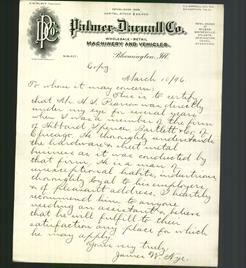 Palmer-Darnall Co.
WHOLESALE - RETAIL
MACHINERY AND VEHICLES.
Bloomington, Ill.
Copy
March 16/96
To whom it may concern:
This is to certify
that Mr. H. S. Pearson was directly
under my eye for several years
when I was a member of the firm
of Hibbard Spencer Bartlett & Co of
Chicago. He thoroughly understands
the hardware & sheet metal
business as it was conducted by
that firm, is a man of
unexceptional habits, industrious,
thoroughly loyal to his employers
& of pleasant address, I heartily
recommend him to anyone
needing an assistant & believe
that he will fulfill to their
satisfaction any place for which
he may apply.
Yours very truly,
James W. Nye.